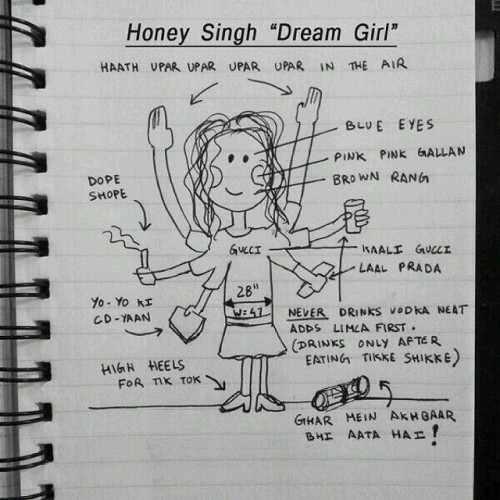 Honey Singh "Dream Girl"
HAATH UPAR UPAR UPAR UPAR IN THE AIR
BLUE EYES
PINK PINK GALLAN
BROWN RANG
DOPE
SHOPE
GUCCI
KAALI GUCCI
LAAL PRADA
28"
W=47
YO-YO KI
CD-YAAN
NEVER DRINKS VODKA NEAT
ADDS LIMCA FIRST.
(DRINKS ONLY AFTER
EATING TIKKE SHIKKE)
HIGH HEELS
FOR TIK TOK
GHAR MEIN AKHBAAR
BHI AATA HAI!